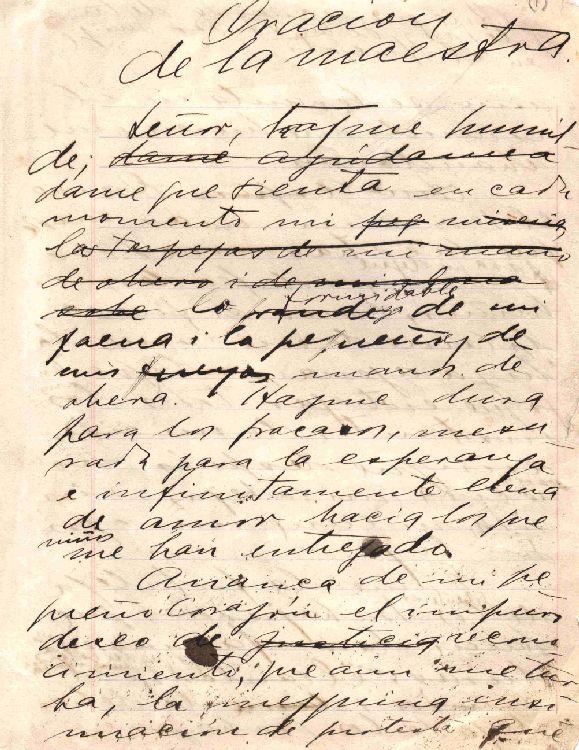 (1)
Oracion
de la maestra.
Señor, hazme humil-
de; dame ayúdame a
dame que sienta en cada
momento mi peq miseria,
las torpezas de mi mano
de obrera i de mi alma
sobre lo formidable
grande, de mi
faena i lo pequeño, de
mis manos de
obrera. Hazme dura
para los fracasos, mesu-
rada para la esperanza
e infinitamente llena
de amor hacia los que
niños
me han entregado.
Arranca de mi pe-
queño corazón el impuro
deseo de justicia recono-
cimiento, que aun me tur-
ba, la mezquina insi-
nuación de protesta que